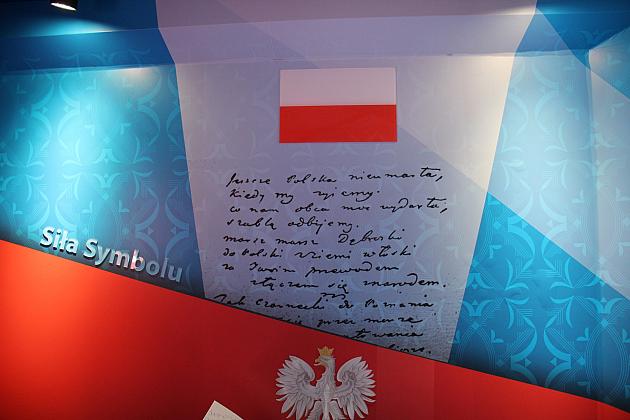 Jeszcze Polska nieumarła,
kiedy my żyjemy.
co nam obca moc wydarła,
szablą odbijemy.
marsz marsz Dąbrski
do Polski z ziemi włoski
za Twoim przewodem
złączem się z narodem.
Jak Czarnecki do Poznania
przez morze
Siła Symbolu